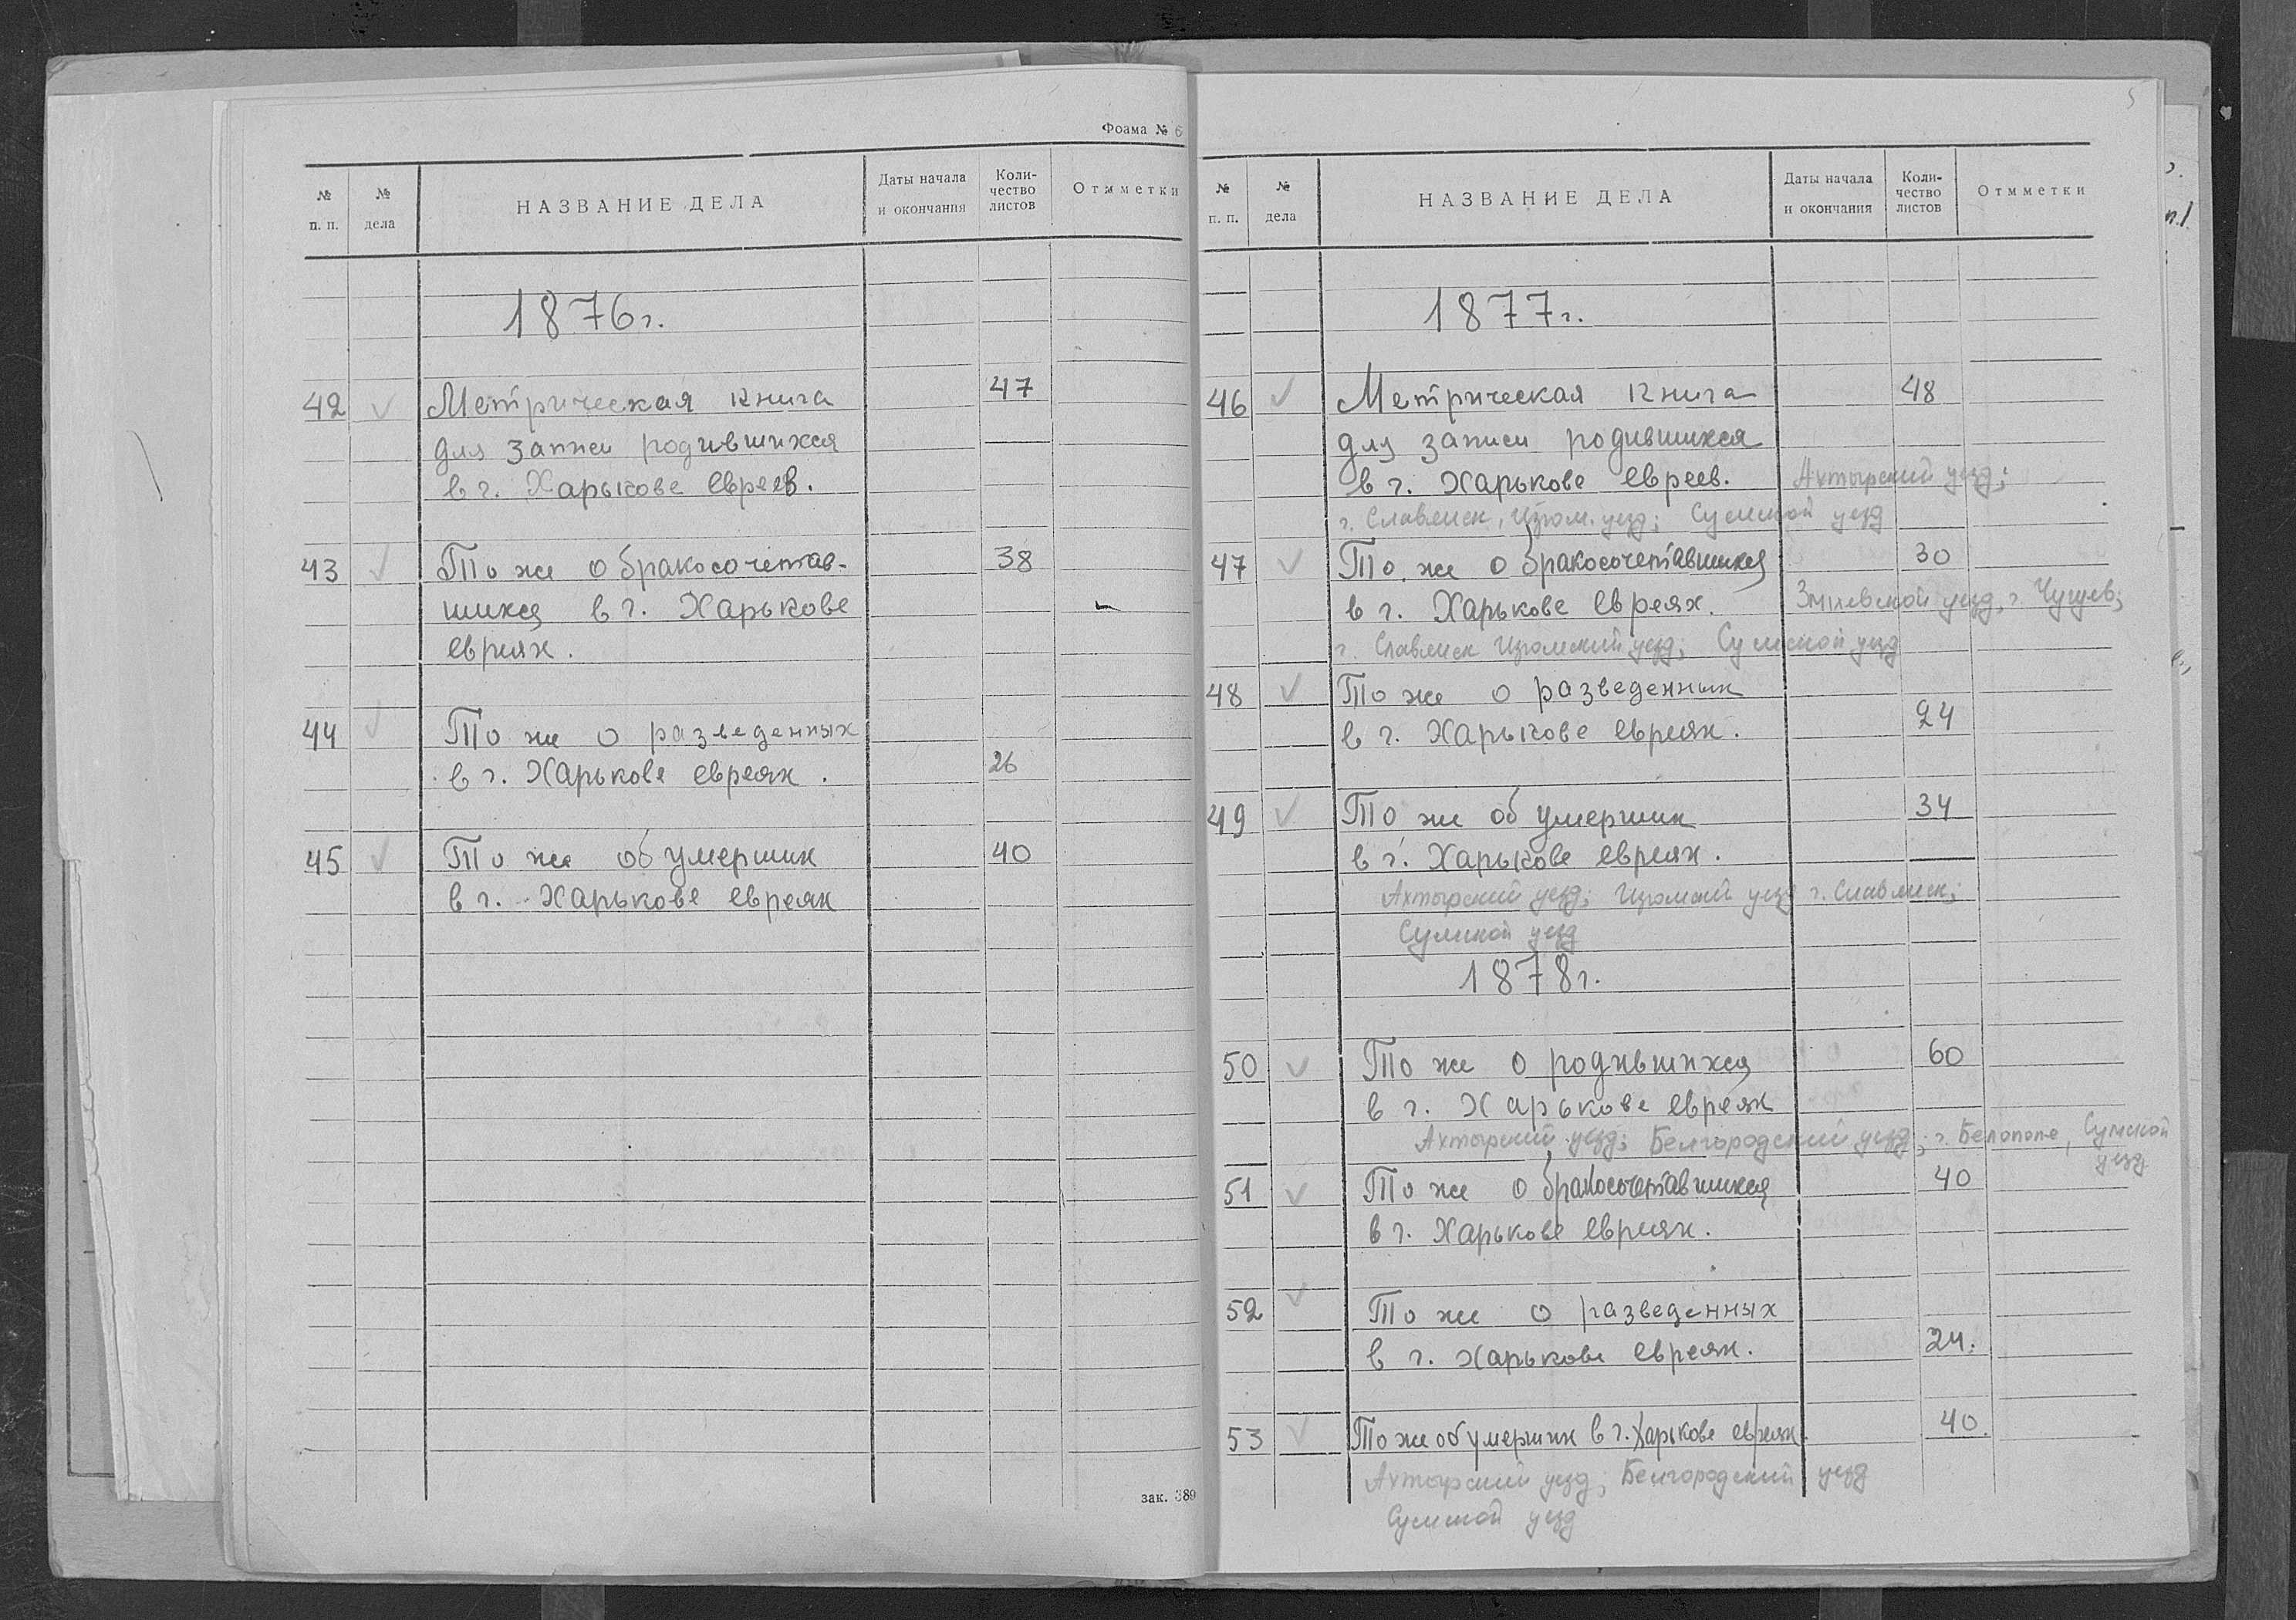 Фоама № 6
№ п. п.
№ дела
НАЗВАНИЕ ДЕЛА
Даты начала и окончания
Коли-чество листов
Отмметки
1876г.
42 ✓ Метрическая книга 47
для записи родившихся
в г. Харькове евреев.
43 ✓ То же о бракосочетав- 38
шихся в г. Харькове
евреях.
44 ✓ То же о разведенных
в г. Харькове евреях. 26
45 ✓ То же об умерших 40
в г. Харькове евреях
зак. 389
5
№ п. п.
№ дела
НАЗВАНИЕ ДЕЛА
Даты начала и окончания
Коли-чество листов
Отмметки
1877г.
46 ✓ Метрическая книга 48
для записи родившихся
в г. Харькове евреев. Ахтырский уезд;
г. Славянск, Изюм. уезд; Сумской уезд
47 ✓ То же о бракосочетавшихся 30
в г. Харькове евреях. Змиевской уезд, г. Чугуев;
г. Славянск Изюмский уезд; Сумской уезд
48 ✓ То же о разведенных
в г. Харькове евреях. 24
49 ✓ То же об умерших 34
в г. Харькове евреях.
Ахтырский уезд; Изюмский уезд г. Славянск;
Сумской уезд
1878г.
50 ✓ То же о родившихся 60
в г. Харькове евреях
Ахтырский уезд; Белгородский уезд; г. Белополе, Сумской
уезд
51 ✓ То же о бракосочетавшихся 40
в г. Харькове евреях.
52 ✓ То же о разведенных
в г. Харькове евреях. 24.
53 ✓ То же об умерших в г. Харькове евреях. 40.
Ахтырский уезд; Белгородский уезд
Сумской уезд